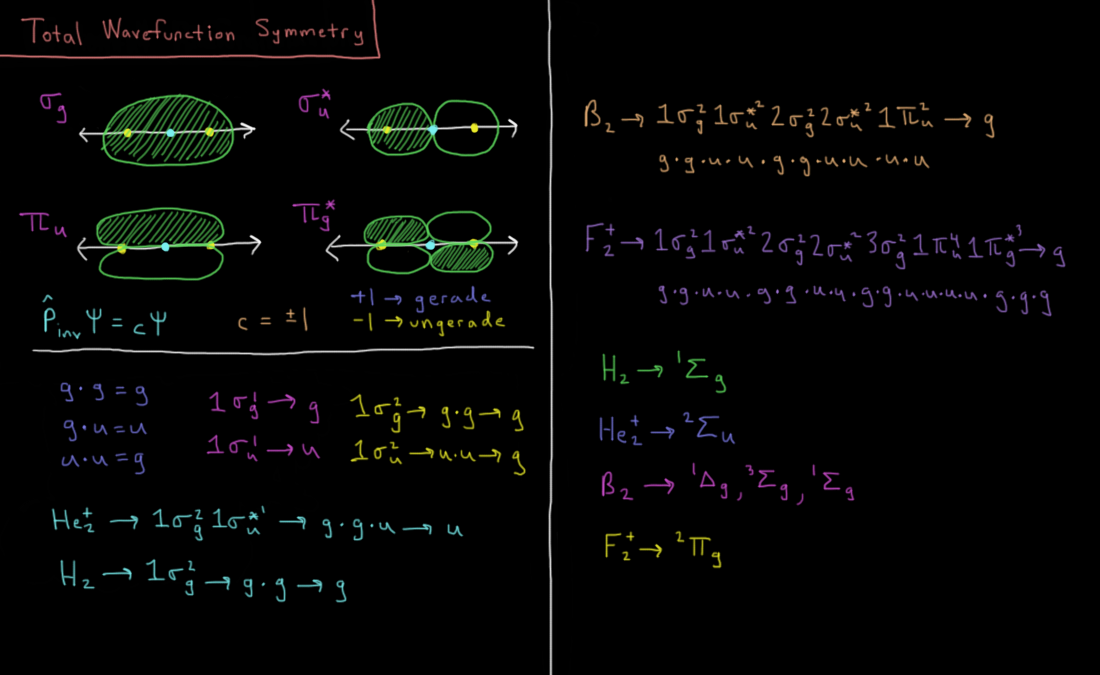 Total Wavefunction Symmetry
σ_g
σ_u^*
π_u
π_g^*
P̂_inv Ψ = cΨ
c = ±1
+1 → gerade
-1 → ungerade
g·g = g
g·u = u
u·u = g
1σ_g^1 → g
1σ_u^1 → u
1σ_g^2 → g·g → g
1σ_u^2 → u·u → g
He_2^+ → 1σ_g^2 1σ_u^*1 → g·g·u → u
H_2 → 1σ_g^2 → g·g → g
B_2 → 1σ_g^2 1σ_u^*2 2σ_g^2 2σ_u^*2 1π_u^2 → g
g·g·u·u·g·g·u·u·u·u
F_2^+ → 1σ_g^2 1σ_u^*2 2σ_g^2 2σ_u^*2 3σ_g^2 1π_u^4 1π_g^*3 → g
g·g·u·u·g·g·u·u·g·g·u·u·u·u·g·g·g
H_2 → ^1Σ_g
He_2^+ → ^2Σ_u
B_2 → ^1Δ_g, ^3Σ_g, ^1Σ_g
F_2^+ → ^2Π_g